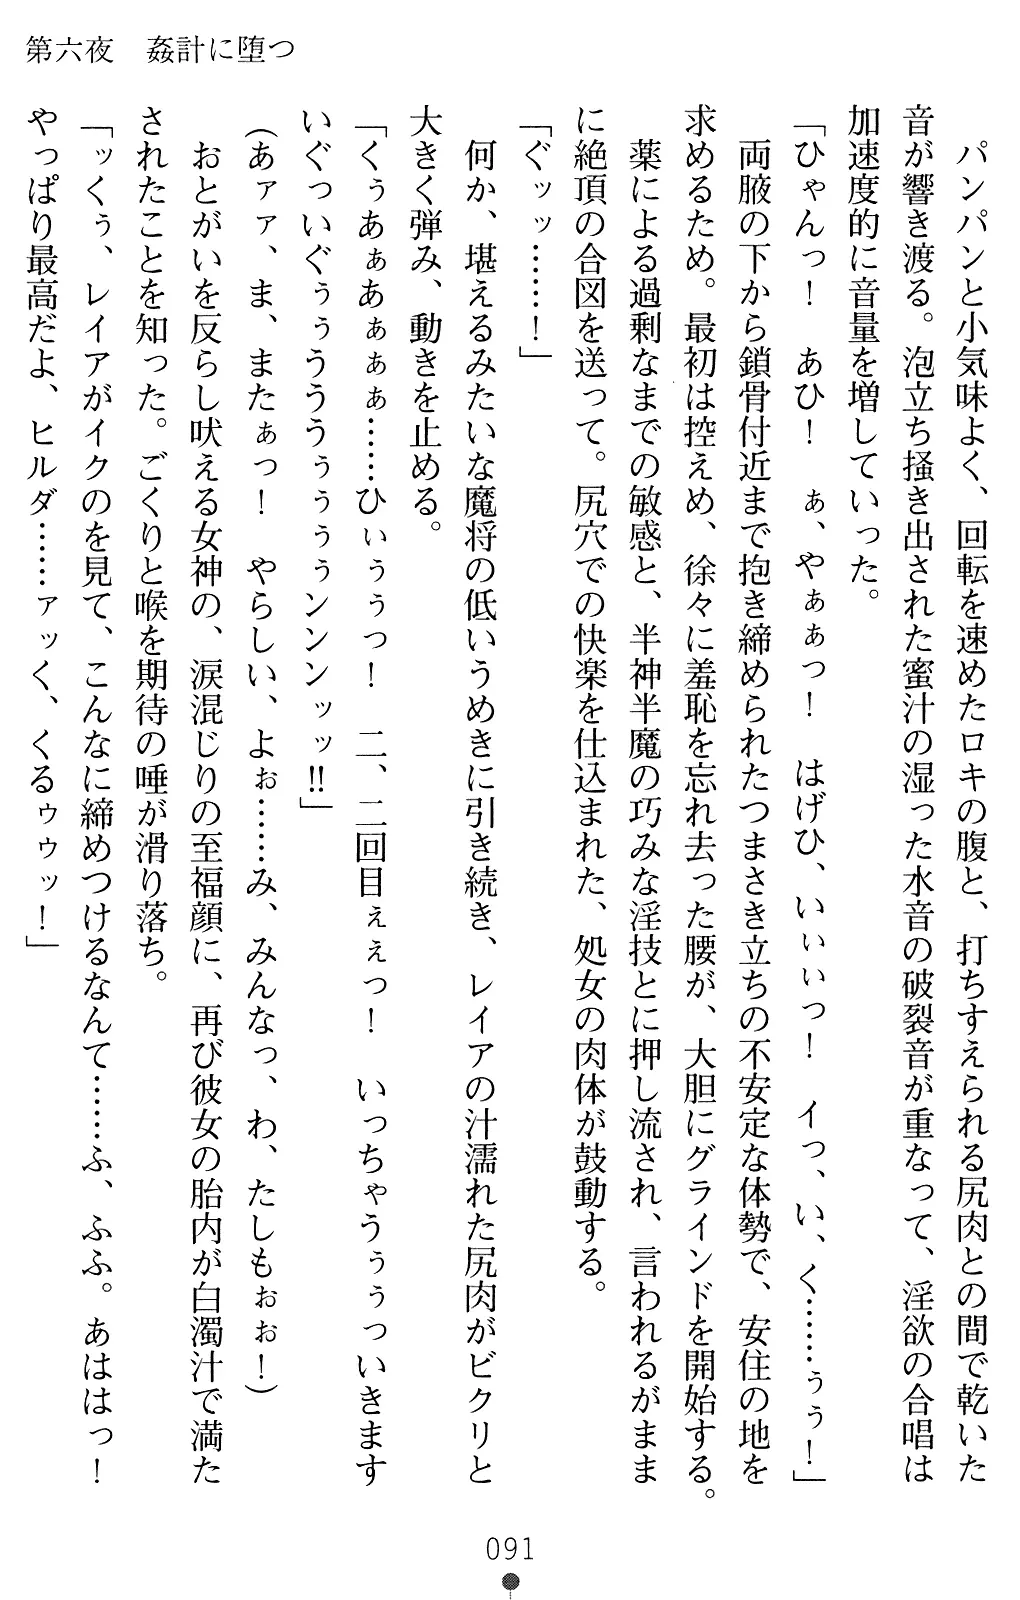 第六夜　姦計に堕つ
　パンパンと小気味よく、回転を速めたロキの腹と、打ちすえられる尻肉との間で乾いた
音が響き渡る。泡立ち掻き出された蜜汁の湿った水音の破裂音が重なって、淫欲の合唱は
加速度的に音量を増していった。
「ひゃんっ！　あひ！　ぁ、やぁぁっ！　はげひ、いぃぃっ！　イっ、い、く……ぅぅ！」
　両腋の下から鎖骨付近まで抱き締められたつまさき立ちの不安定な体勢で、安住の地を
求めるため。最初は控えめ、徐々に羞恥を忘れ去った腰が、大胆にグラインドを開始する。
　薬による過剰なまでの敏感と、半神半魔の巧みな淫技とに押し流され、言われるがまま
に絶頂の合図を送って。尻穴での快楽を仕込まれた、処女の肉体が鼓動する。
「ぐッッ……！」
　何か、堪えるみたいな魔将の低いうめきに引き続き、レイアの汁濡れた尻肉がビクリと
大きく弾み、動きを止める。
「くぅあぁあぁぁぁ……ひぃぅぅっ！　二、二回目ぇぇっ！　いっちゃうぅぅっいきます
いぐっいぐぅぅうううぅぅぅぅンンンッッ!!」
（あァァ、ま、またぁっ！　やらしい、よぉ……み、みんなっ、わ、たしもぉぉ！）
　おとがいを反らし吠える女神の、涙混じりの至福顔に、再び彼女の胎内が白濁汁で満た
されたことを知った。ごくりと喉を期待の唾が滑り落ち。
「ッくぅ、レイアがイクのを見て、こんなに締めつけるなんて……ふ、ふふ。あははっ！
やっぱり最高だよ、ヒルダ……ァッく、くるゥゥッ！」
091